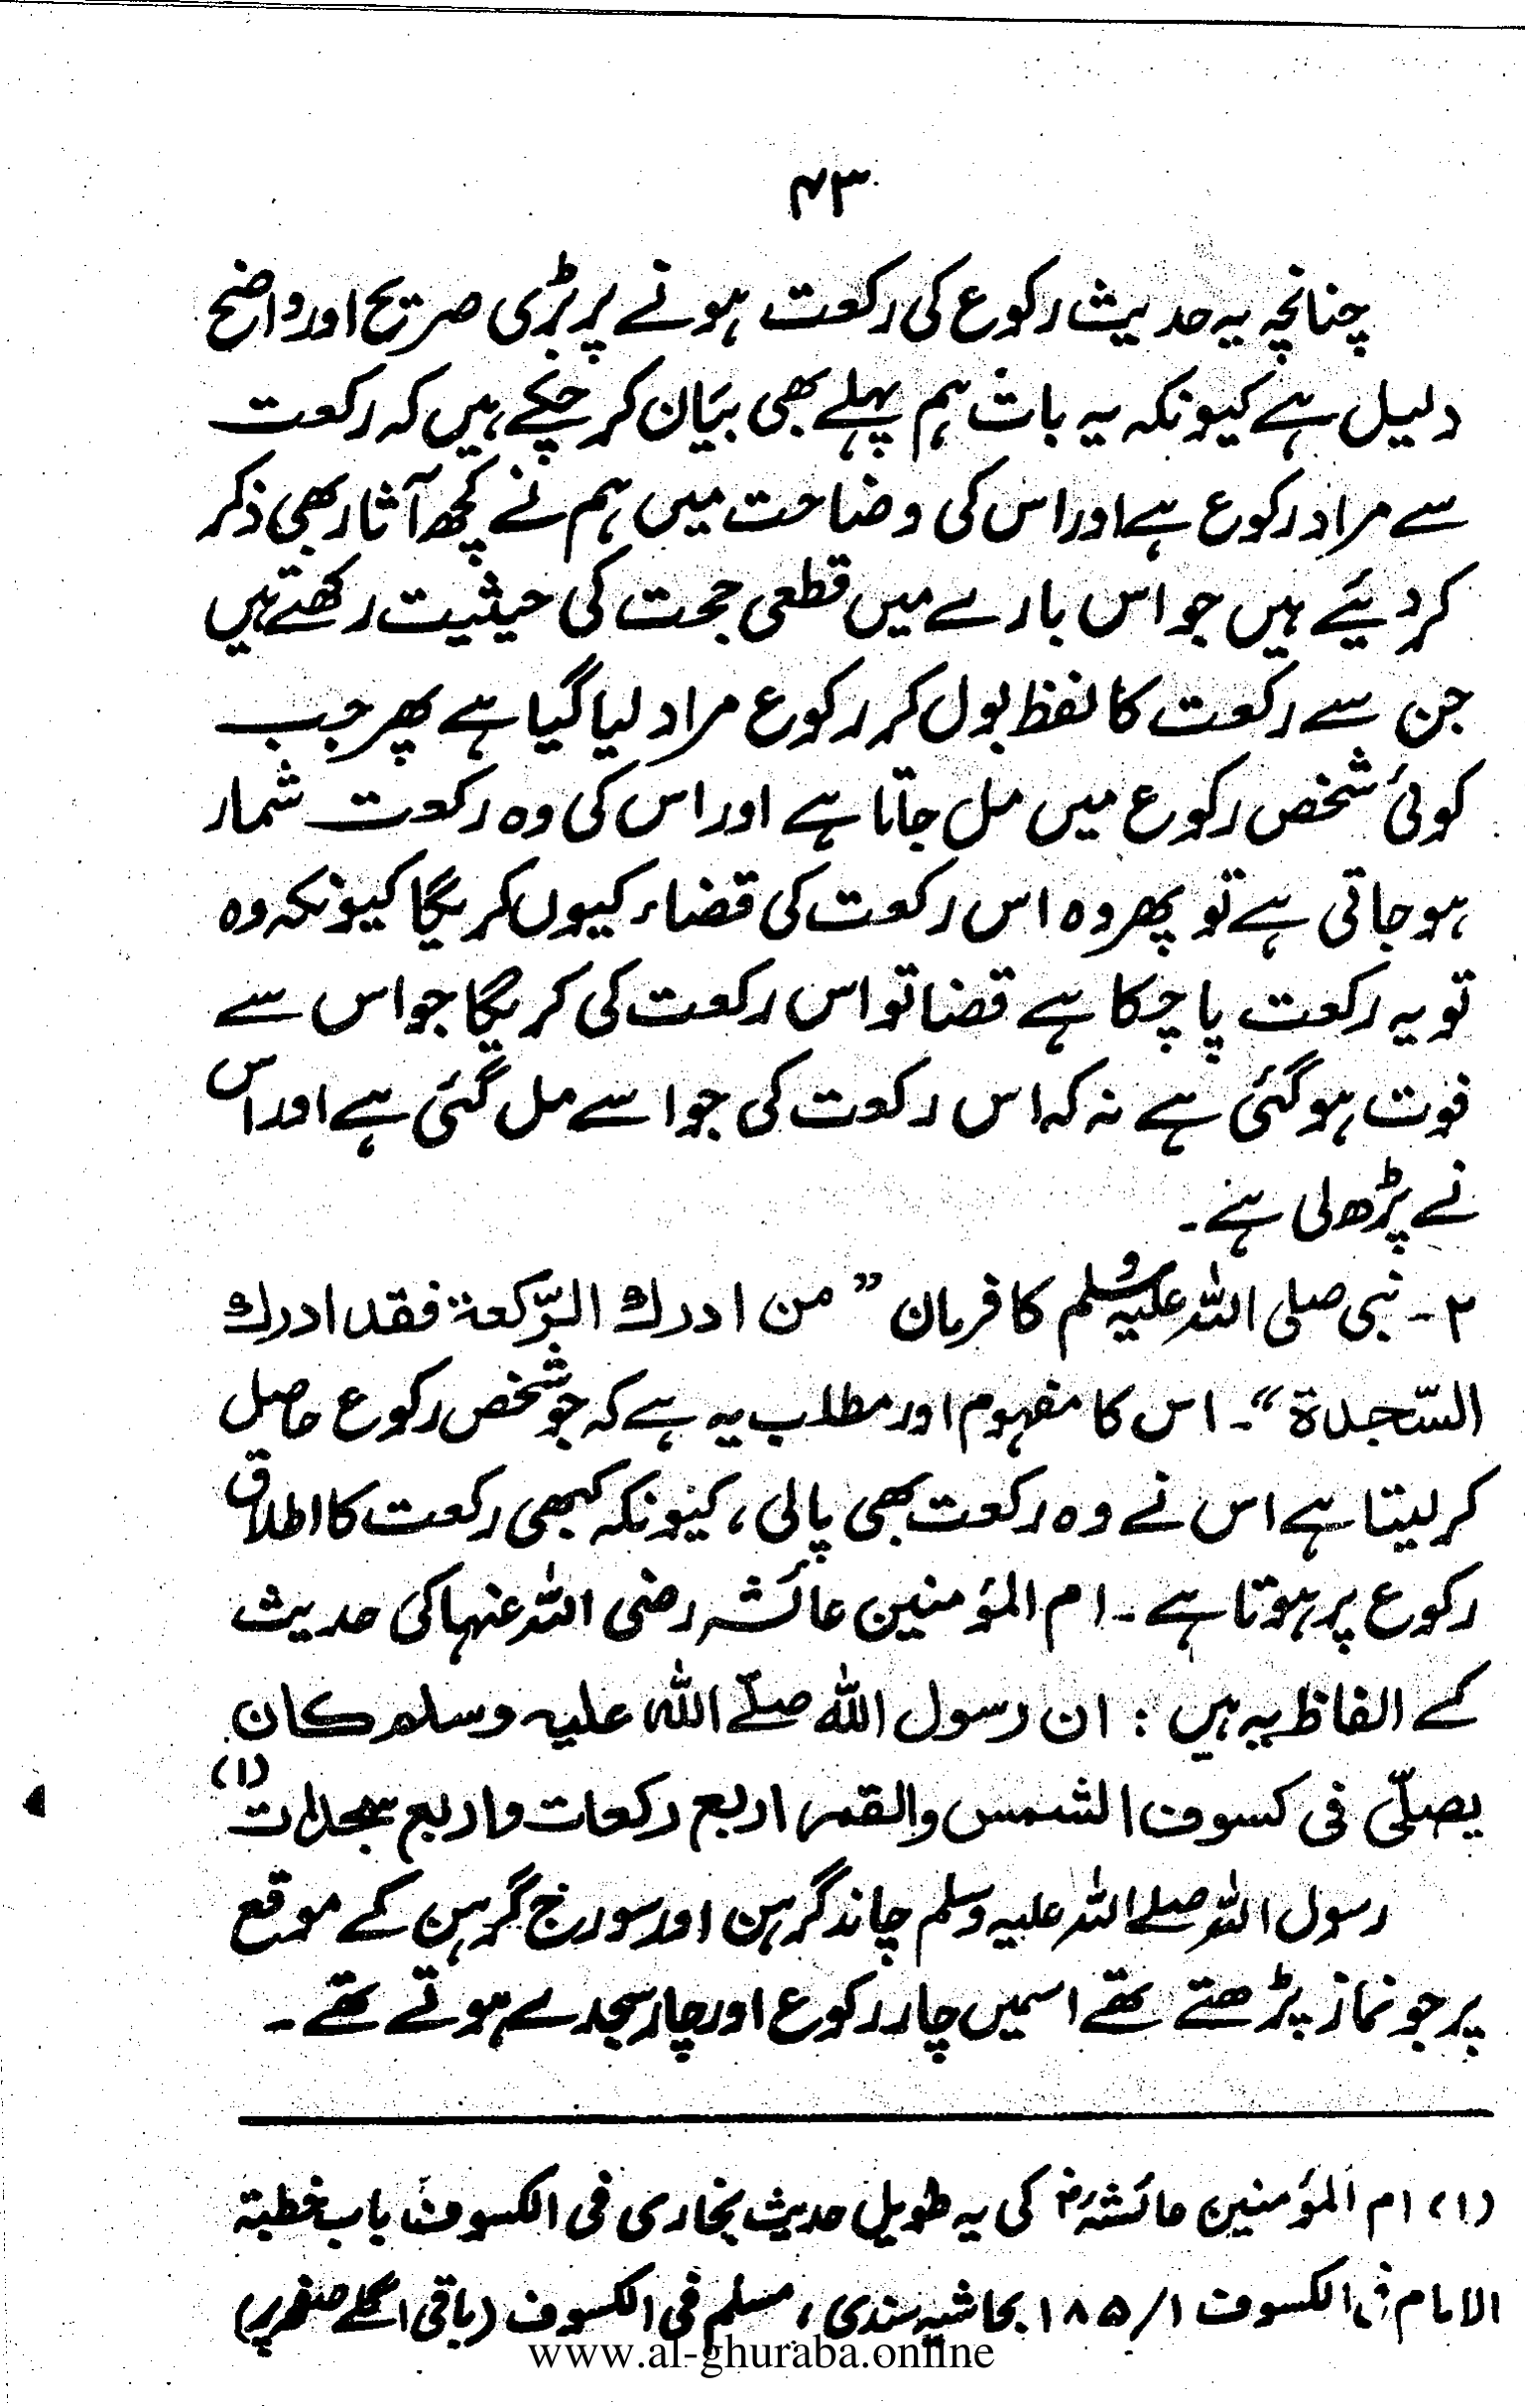 ۴۳
چنانچہ یہ حدیث رکوع کی رکعت ہونے پر بڑی صریح اور واضح
دلیل ہے کیونکہ یہ بات ہم پہلے بھی بیان کر چکے ہیں کہ رکعت
سے مراد رکوع ہے اور اس کی وضاحت میں ہم نے کچھ آثار بھی ذکر
کر دیئے ہیں جو اس بارے میں قطعی حجت کی حیثیت رکھتے ہیں
جن سے رکعت کا لفظ بول کر رکوع مراد لیا گیا ہے پھر جب
کوئی شخص رکوع میں مل جاتا ہے اور اس کی وہ رکعت شمار
ہو جاتی ہے تو پھر وہ اس رکعت کی قضاء کیوں کریگا کیونکہ وہ
تو یہ رکعت پا چکا ہے قضا تو اس رکعت کی کریگا جو اس سے
فوت ہو گئی ہے نہ کہ اس رکعت کی جو اسے مل گئی ہے اور اس
نے پڑھ لی ہے۔
۲۔ نبی صلی اللہ علیہ وسلم کا فرمان ”من ادرك الرّكعة فقد ادرك
السّجدة“۔ اس کا مفہوم اور مطلب یہ ہے کہ جو شخص رکوع حاصل
کر لیتا ہے اس نے وہ رکعت بھی پالی، کیونکہ کبھی رکعت کا اطلاق
رکوع پر ہوتا ہے۔ ام المؤمنین عائشہ رضی اللہ عنہا کی حدیث
کے الفاظ یہ ہیں : ان رسول الله صلّے الله عليہ وسلم كان
يصلّي في كسوف الشمس والقمر اربع ركعات واربع سجدات (۱)
رسول اللہ صلے اللہ علیہ وسلم چاند گرہن اور سورج گرہن کے موقع
پر جو نماز پڑھتے تھے اسمیں چار رکوع اور چار سجدے ہوتے تھے۔
(۱) ام المؤمنین عائشہؓ کی یہ طویل حدیث بخاری فی الکسوف باب خطبة
الامام فی الکسوف ۱/۱۸۵ بحاشیہ سندی، مسلم فی الکسوف (باقی اگلے صفحہ پر)
www.al-ghuraba.online